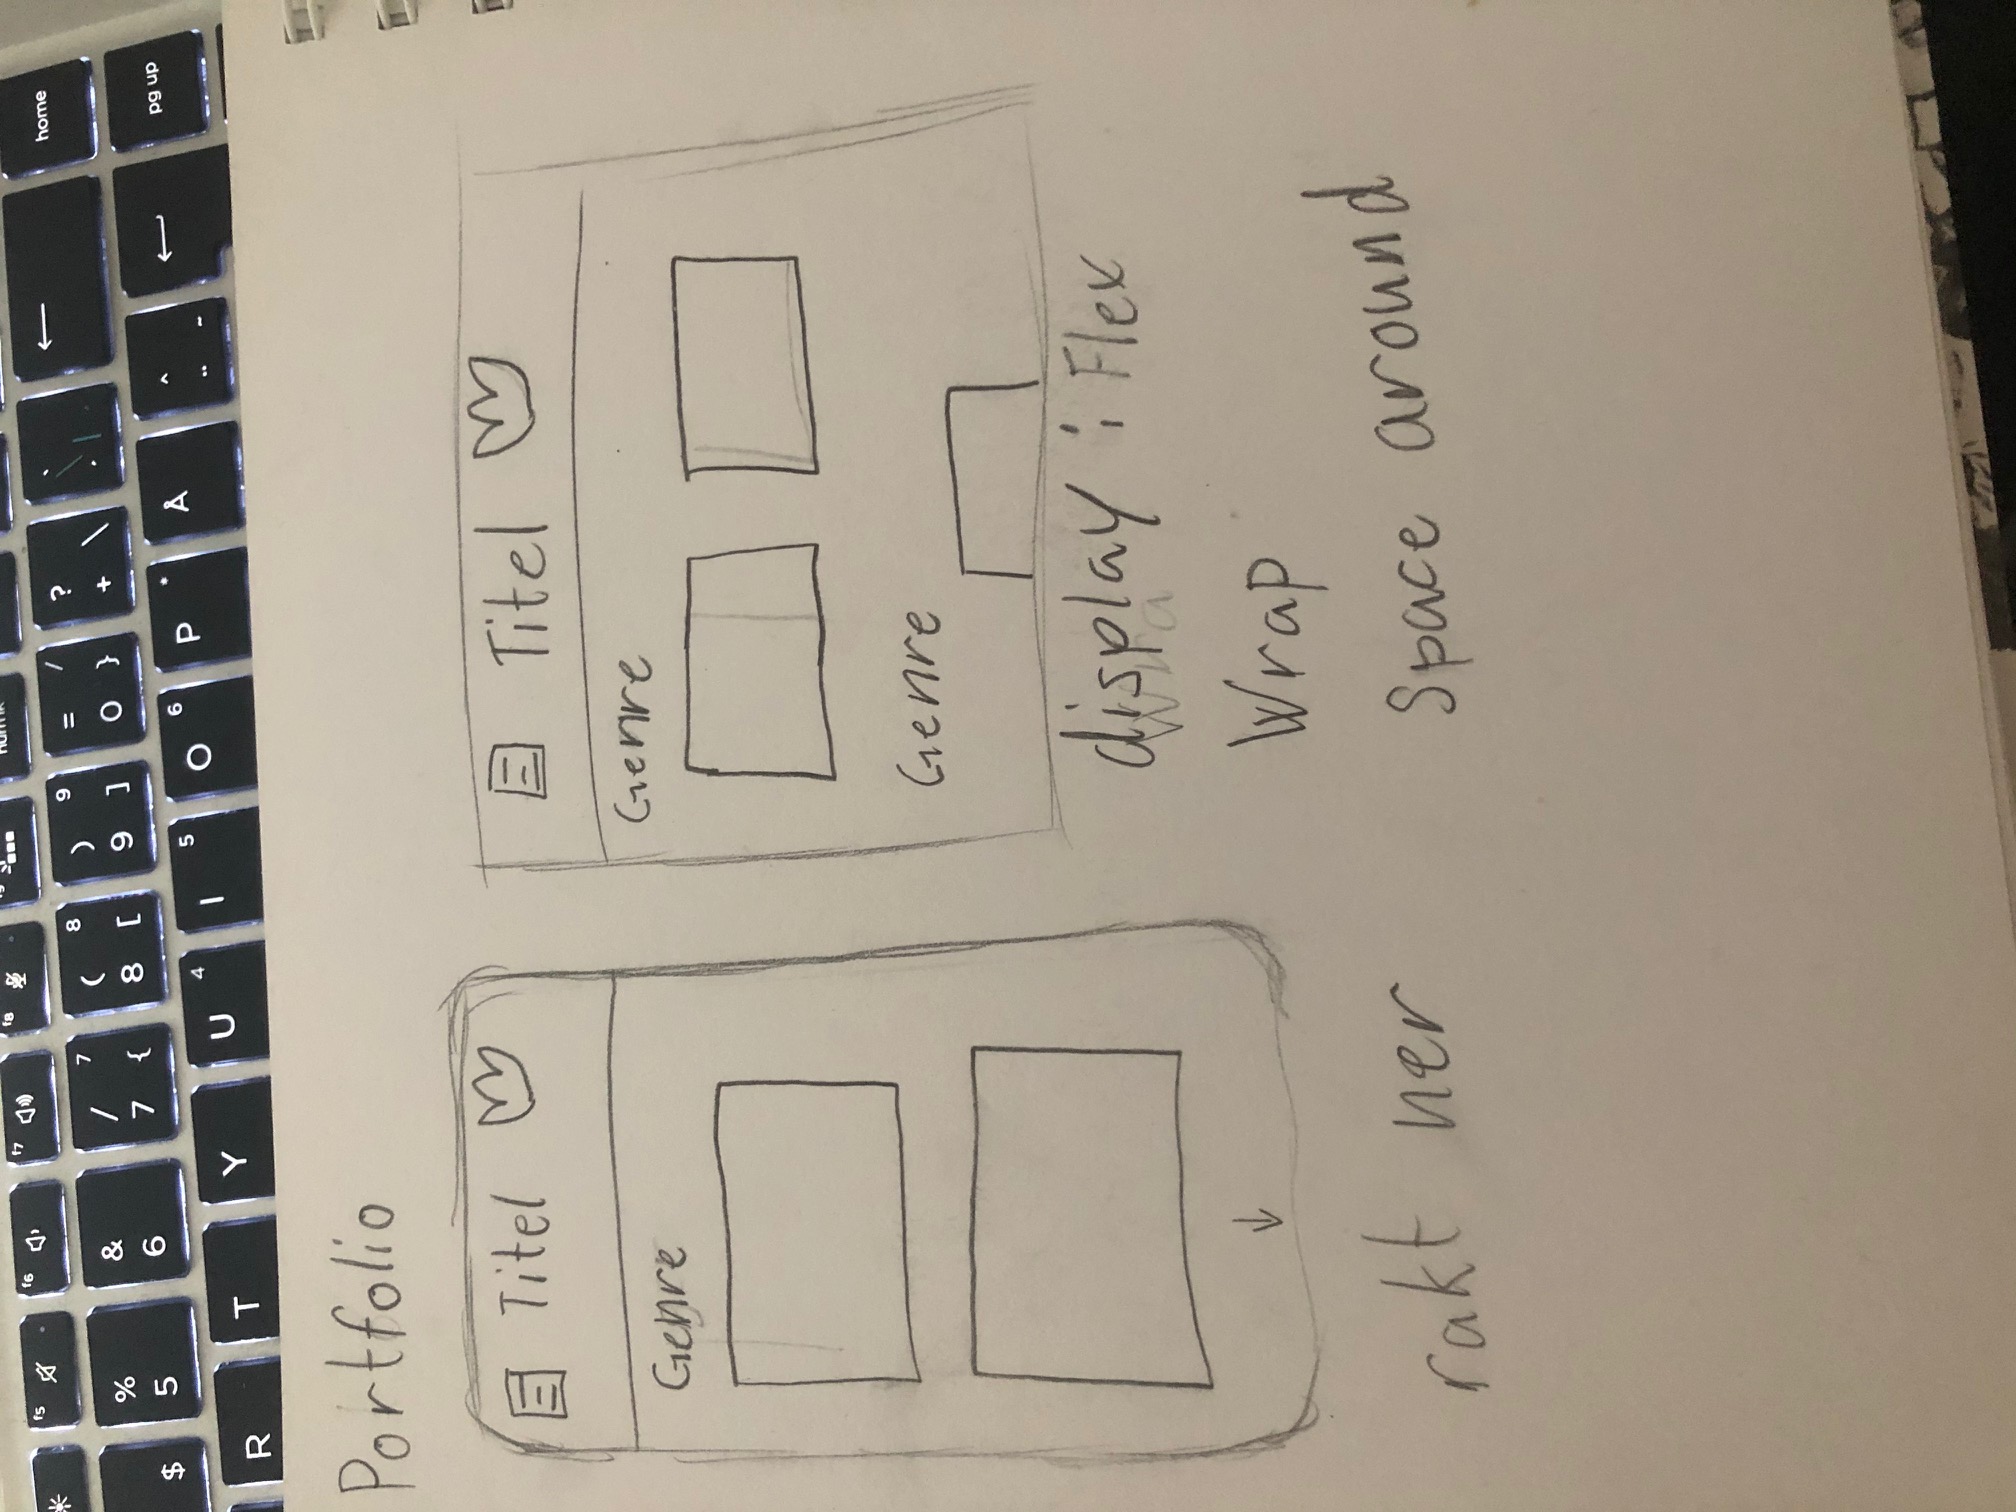 f5 f6 f7 f8
% & / 7 ( 8 ) 9 = / ? ` home
$ 5 6 7 { 8 [ 9 ] 0 } + \ ´ |
R T Y U 4 I 5 O 6 P * Å ^ ¨ ~ pg up
Portfolio
Titel
Genre
rakt ner
Titel
Genre
Genre
display : Flex
Wra
Wrap
Space around